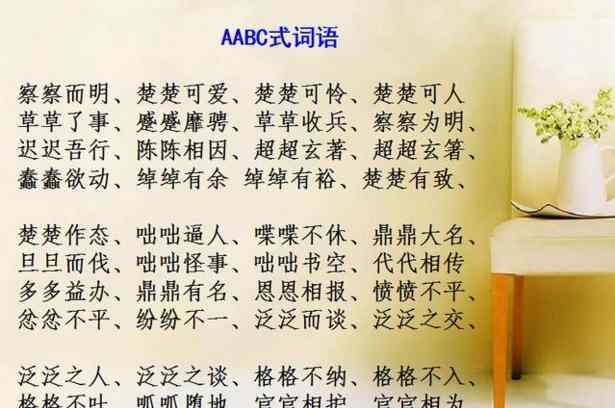 AABC式词语
察察而明、楚楚可爱、楚楚可怜、楚楚可人
草草了事、蹙蹙靡骋、草草收兵、察察为明、
迟迟吾行、陈陈相因、超超玄著、超超玄箸、
蠢蠢欲动、绰绰有余 绰绰有裕、楚楚有致、
楚楚作态、咄咄逼人、喋喋不休、鼎鼎大名、
旦旦而伐、咄咄怪事、咄咄书空、代代相传
多多益办、鼎鼎有名、恩恩相报、愤愤不平、
忿忿不平、纷纷不一、泛泛而谈、泛泛之交、
泛泛之人、泛泛之谈、格格不纳、格格不入、
格格不吐、呱呱堕地、官官相护、官官相为